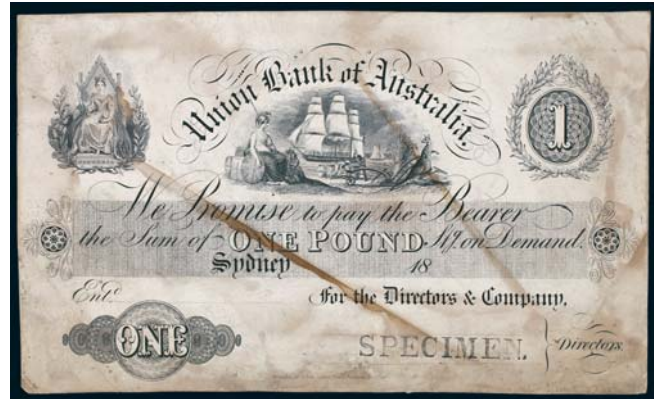 Union Bank of Australia.
1
We Promise to pay the Bearer
the Sum of ONE POUND Stg. on Demand.
Sydney 18
Entd. For the Directors & Company,
ONE
SPECIMEN.
Directors.